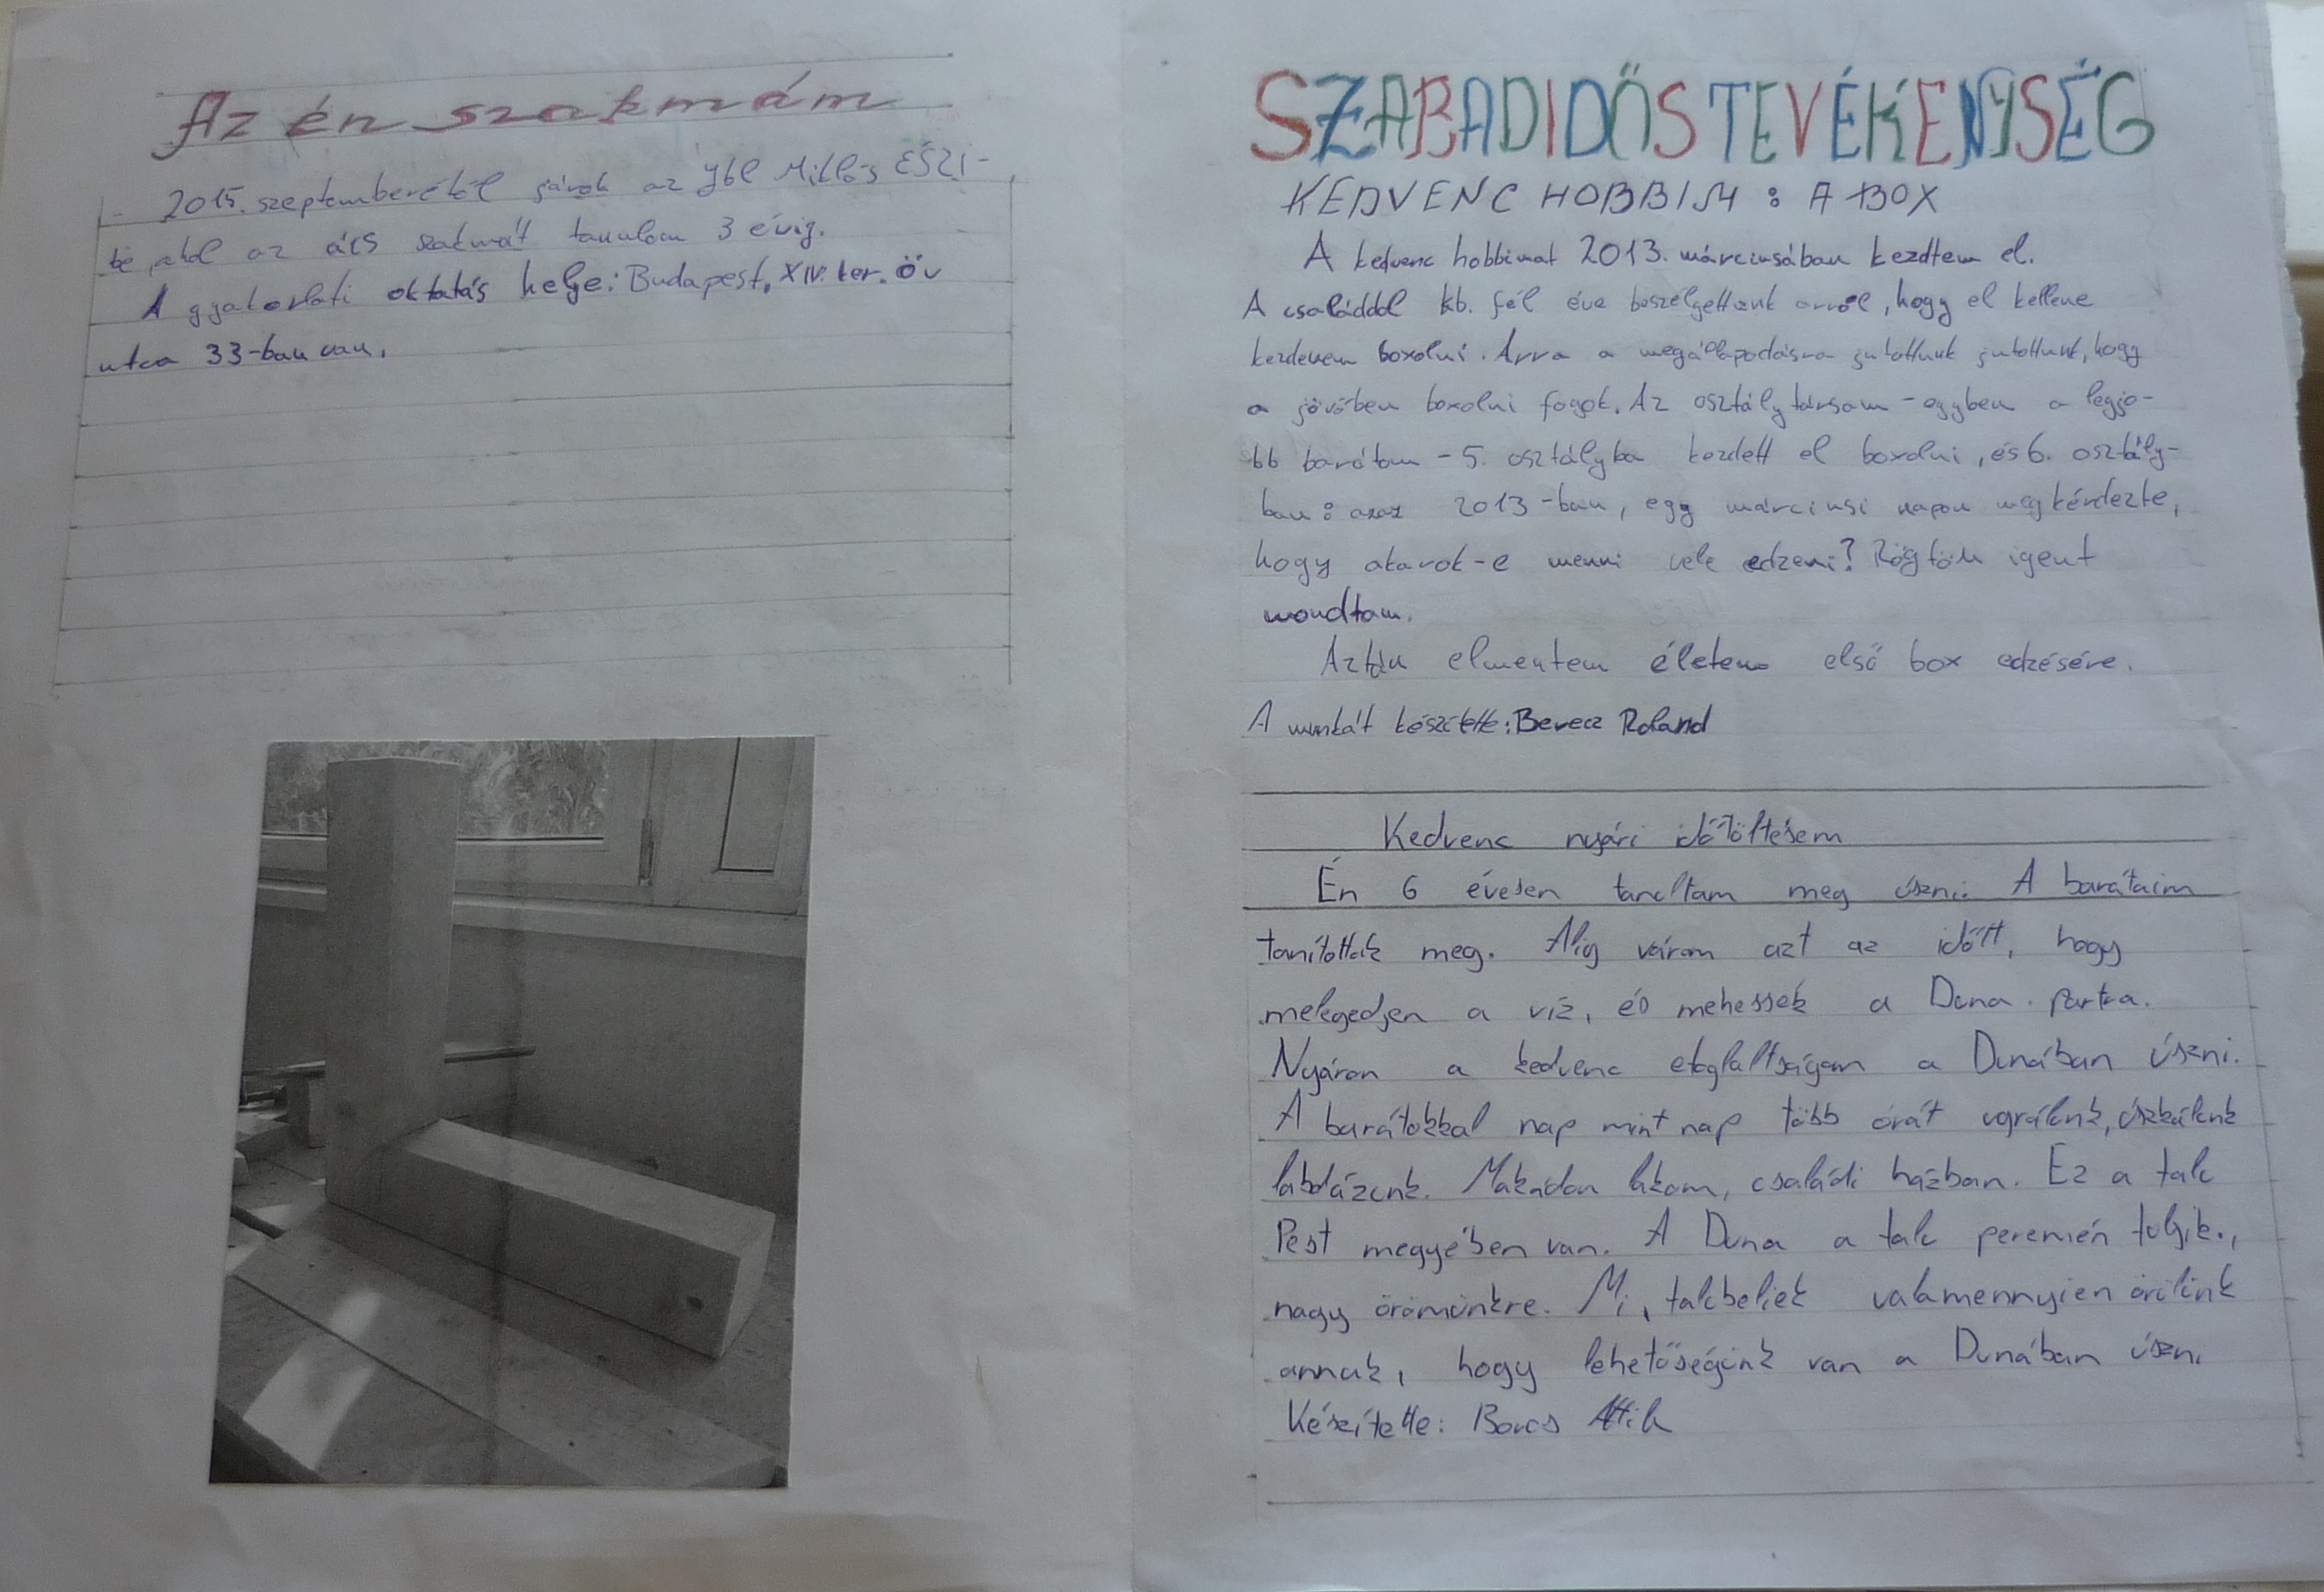 Az én szakmám
2015. szeptemberétől járok az Ybl Miklós ÉSZI-
be, ahol az ács szakmát tanulom 3 évig.
A gyakorlati oktatás helye: Budapest, XIV. ker. Öv
utca 33-ban van.
SZABADIDŐS TEVÉKENYSÉG
KEDVENC HOBBIM: A BOX
A kedvenc hobbimat 2013. márciusában kezdtem el.
A családdal kb. fél éve beszélgettünk arról, hogy el kellene
kezdenem boxolni. Arra a megállapodásra jutottunk jutottunk, hogy
a jövőben boxolni fogok. Az osztálytársam - egyben a legjo-
bb barátom - 5. osztályba kezdett el boxolni, és 6. osztály-
ban: azaz 2013-ban, egy márciusi napon megkérdezte,
hogy akarok-e menni vele edzeni? Rögtön igent
mondtam.
Aztán elmentem életem első box edzésére.
A munkát készítette: Berecz Roland
Kedvenc nyári időtöltésem
Én 6 évesen tanultam meg úszni. A barátaim
tanítottak meg. Alig várom azt az időt, hogy
melegedjen a víz, és mehessek a Duna partra.
Nyáron a kedvenc elfoglaltságom a Dunában úszni.
A barátokkal nap mint nap több órát ugrálunk, úszkálunk
labdázunk. Makádon lakom, családi házban. Ez a falu
Pest megyében van. A Duna a falu peremén folyik.,
nagy örömünkre. Mi, falubeliek valamennyien örülünk
annak, hogy lehetőségünk van a Dunában úszni
Készítette: Boros Attila